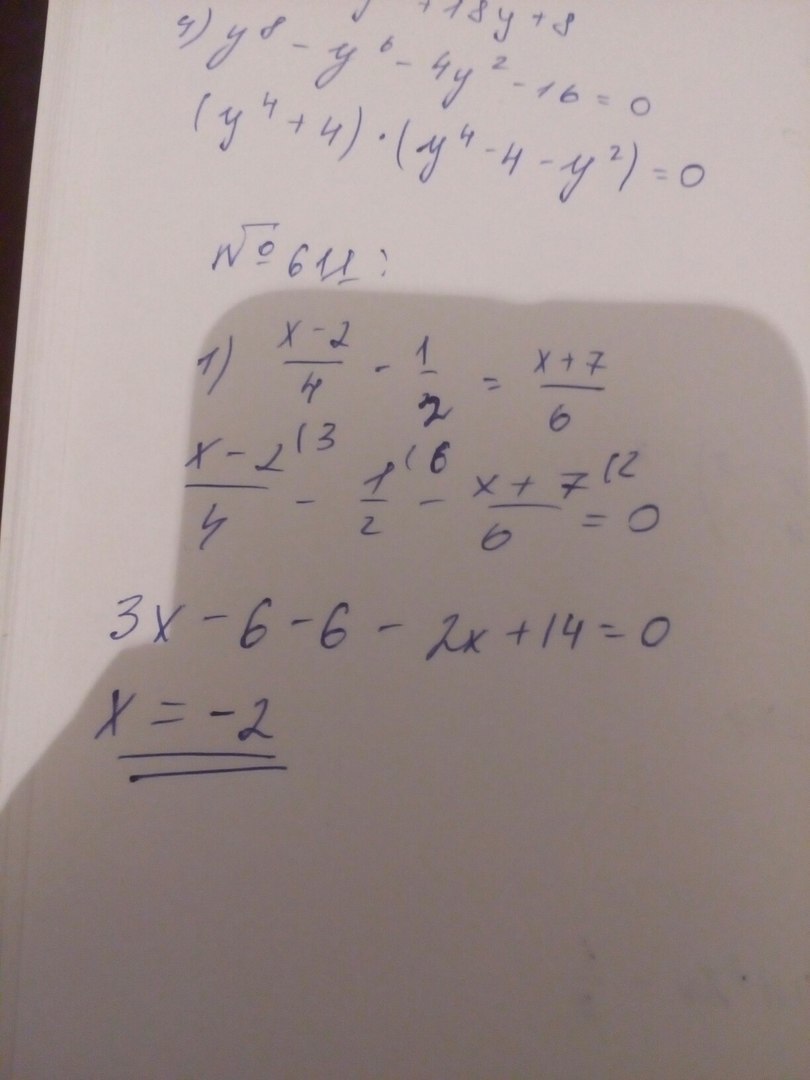 +18y+8
4) y⁸ - y⁶ - 4y² - 16 = 0
(y⁴ + 4) · (y⁴ - 4 - y²) = 0
№ 611:
1) (x-2)/4 - 1/2 = (x+7)/6
(x-2)/4 (3 - 1/2 (6 - (x+7)/6 (2 = 0
3x - 6 - 6 - 2x + 14 = 0
x = -2